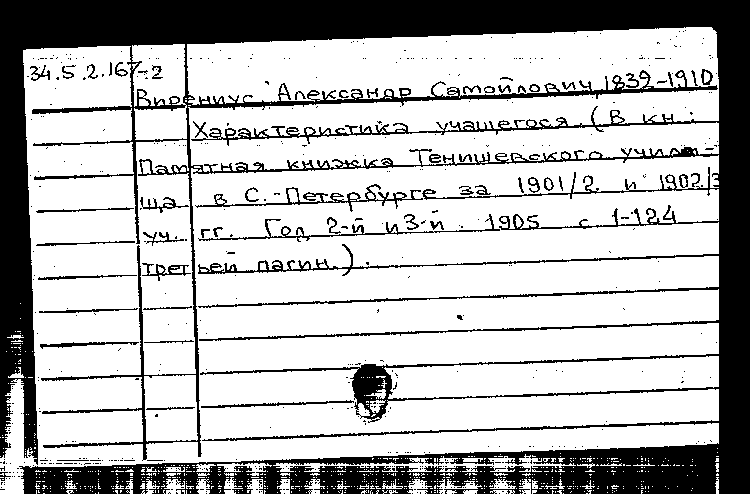 34.5.2.167-2
Вирениус, Александр Самойлович, 1832-1910
Характеристика учащегося. (В кн.:
Памятная книжка Тенишевского учили-
ща в С.-Петербурге за 1901/2 и 1902/3
уч. гг. Год 2-й и 3-й. 1905 с 1-124
третьей пагин.).